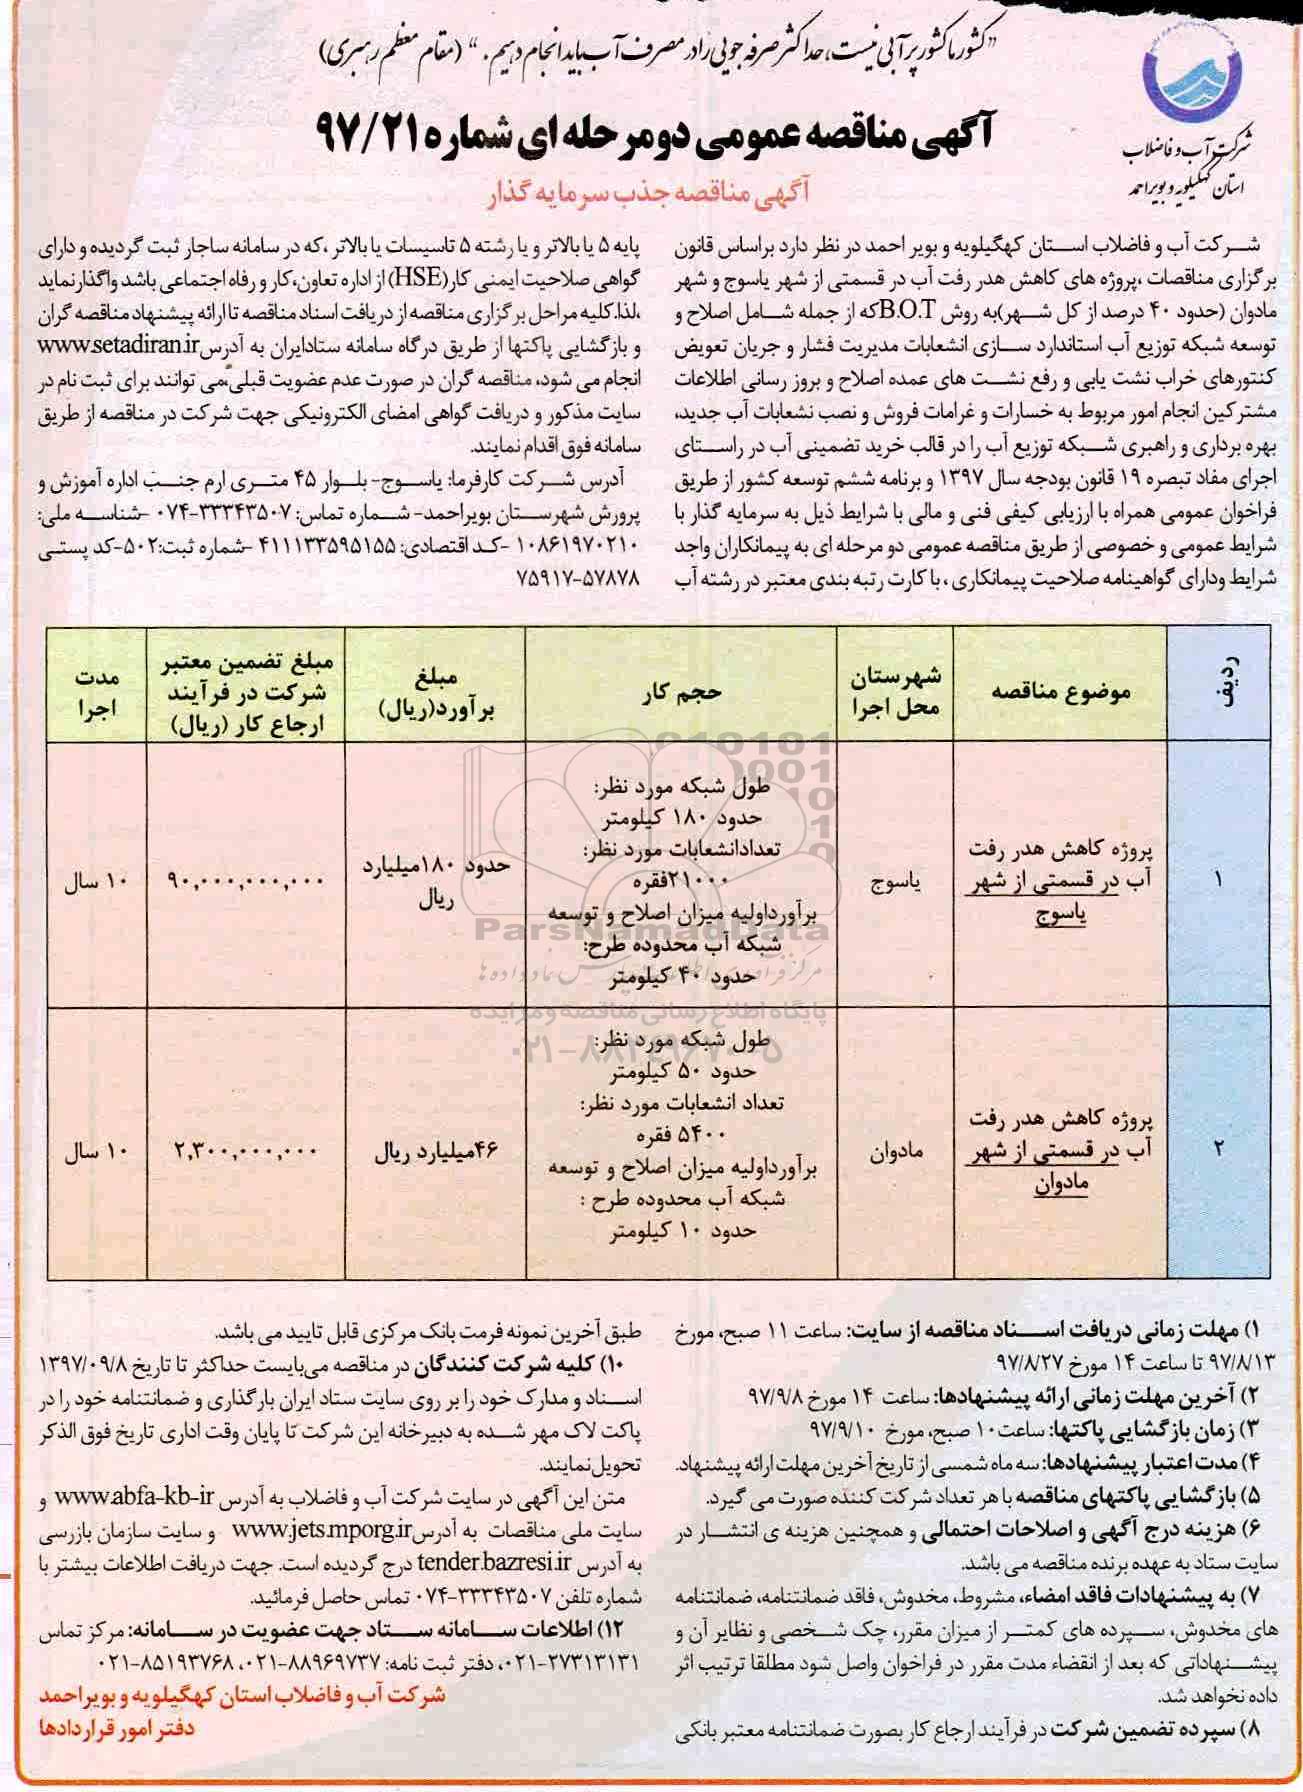 "کشور ما کشور پر آبی نیست، حداکثر صرفه جویی را در مصرف آب باید انجام دهیم." (مقام معظم رهبری)
شرکت آب و فاضلاب
استان کهگیلویه و بویراحمد
آگهی مناقصه عمومی دومرحله ای شماره ۹۷/۲۱
آگهی مناقصه جذب سرمایه گذار
شرکت آب و فاضلاب استان کهگیلویه و بویر احمد در نظر دارد براساس قانون
برگزاری مناقصات ،پروژه های کاهش هدر رفت آب در قسمتی از شهر یاسوج و شهر
مادوان (حدود ۴۰ درصد از کل شهر)به روش B.O.Tکه از جمله شامل اصلاح و
توسعه شبکه توزیع آب استاندارد سازی انشعابات مدیریت فشار و جریان تعویض
کنتورهای خراب نشت یابی و رفع نشت های عمده اصلاح و بروز رسانی اطلاعات
مشترکین انجام امور مربوط به خسارات و غرامات فروش و نصب نشعابات آب جدید،
بهره برداری و راهبری شبکه توزیع آب را در قالب خرید تضمینی آب در راستای
اجرای مفاد تبصره ۱۹ قانون بودجه سال ۱۳۹۷ و برنامه ششم توسعه کشور از طریق
فراخوان عمومی همراه با ارزیابی کیفی فنی و مالی با شرایط ذیل به سرمایه گذار با
شرایط عمومی و خصوصی از طریق مناقصه عمومی دو مرحله ای به پیمانکاران واجد
شرایط ودارای گواهینامه صلاحیت پیمانکاری ، با کارت رتبه بندی معتبر در رشته آب
پایه ۵ یا بالاتر و یا رشته ۵ تاسیسات یا بالاتر ،که در سامانه ساجار ثبت گردیده و دارای
گواهی صلاحیت ایمنی کار(HSE) از اداره تعاون،کار و رفاه اجتماعی باشد واگذار نماید
،لذا.کلیه مراحل برگزاری مناقصه از دریافت اسناد مناقصه تا ارائه پیشنهاد مناقصه گران
و بازگشایی پاکتها از طریق درگاه سامانه ستادایران به آدرسwww.setadiran.ir
انجام می شود، مناقصه گران در صورت عدم عضویت قبلی،می توانند برای ثبت نام در
سایت مذکور و دریافت گواهی امضای الکترونیکی جهت شرکت در مناقصه از طریق
سامانه فوق اقدام نمایند.
آدرس شرکت کارفرما: یاسوج- بلوار ۴۵ متری ارم جنب اداره آموزش و
پرورش شهرستان بویراحمد- شماره تماس: ۳۳۳۴۳۵۰۷-۰۷۴ -شناسه ملی:
۱۰۸۶۱۹۷۰۲۱۰ -کد اقتصادی: ۴۱۱۱۳۳۵۹۵۱۵۵ -شماره ثبت:۵۰۲-کد پستی
۷۵۹۱۷-۵۷۸۷۸
ردیف
موضوع مناقصه
شهرستان
محل اجرا
حجم کار
مبلغ
برآورد(ریال)
مبلغ تضمین معتبر
شرکت در فرآیند
ارجاع کار (ریال)
مدت
اجرا
۱
پروژه کاهش هدر رفت
آب در قسمتی از شهر
یاسوج
یاسوج
طول شبکه مورد نظر:
حدود ۱۸۰ کیلومتر
تعدادانشعابات مورد نظر:
۲۱۰۰۰فقره
برآورداولیه میزان اصلاح و توسعه
شبکه آب محدوده طرح:
حدود ۴۰ کیلومتر
حدود ۱۸۰میلیارد
ریال
۹۰,۰۰۰,۰۰۰,۰۰۰
۱۰ سال
ParsNamadData
پایگاه اطلاع رسانی مناقصه و مزایده
۲
پروژه کاهش هدر رفت
آب در قسمتی از شهر
مادوان
مادوان
طول شبکه مورد نظر:
حدود ۵۰ کیلومتر
تعداد انشعابات مورد نظر:
۵۴۰۰ فقره
برآورداولیه میزان اصلاح و توسعه
شبکه آب محدوده طرح :
حدود ۱۰ کیلومتر
۴۶میلیارد ریال
۲,۳۰۰,۰۰۰,۰۰۰
۱۰ سال
۱) مهلت زمانی دریافت اسناد مناقصه از سایت: ساعت ۱۱ صبح، مورخ
۹۷/۸/۱۳ تا ساعت ۱۴ مورخ ۹۷/۸/۲۷
۲) آخرین مهلت زمانی ارائه پیشنهادها: ساعت ۱۴ مورخ ۹۷/۹/۸
۳) زمان بازگشایی پاکتها: ساعت۱۰ صبح، مورخ ۹۷/۹/۱۰
۴) مدت اعتبار پیشنهادها: سه ماه شمسی از تاریخ آخرین مهلت ارائه پیشنهاد.
۵) بازگشایی پاکتهای مناقصه با هر تعداد شرکت کننده صورت می گیرد.
۶) هزینه درج آگهی و اصلاحات احتمالی و همچنین هزینه ی انتشار در
سایت ستاد به عهده برنده مناقصه می باشد.
۷) به پیشنهادات فاقد امضاء، مشروط، مخدوش، فاقد ضمانتنامه، ضمانتنامه
های مخدوش، سپرده های کمتر از میزان مقرر، چک شخصی و نظایر آن و
پیشنهاداتی که بعد از انقضاء مدت مقرر در فراخوان واصل شود مطلقا ترتیب اثر
داده نخواهد شد.
۸) سپرده تضمین شرکت در فرآیند ارجاع کار بصورت ضمانتنامه معتبر بانکی
طبق آخرین نمونه فرمت بانک مرکزی قابل تایید می باشد.
۱۰) کلیه شرکت کنندگان در مناقصه می‌بایست حداکثر تا تاریخ ۱۳۹۷/۰۹/۸
اسناد و مدارک خود را بر روی سایت ستاد ایران بارگذاری و ضمانتنامه خود را در
پاکت لاک مهر شده به دبیرخانه این شرکت تا پایان وقت اداری تاریخ فوق الذکر
تحویل نمایند.
متن این آگهی در سایت شرکت آب و فاضلاب به آدرس www.abfa-kb-ir و
سایت ملی مناقصات به آدرسwww.jets.mporg.ir و سایت سازمان بازرسی
به آدرس tender.bazresi.ir درج گردیده است. جهت دریافت اطلاعات بیشتر با
شماره تلفن ۳۳۳۴۳۵۰۷-۰۷۴ تماس حاصل فرمائید.
۱۲) اطلاعات سامانه ستاد جهت عضویت در سامانه: مرکز تماس
۲۷۳۱۳۱۳۱-۰۲۱، دفتر ثبت نامه: ۸۸۹۶۹۷۳۷-۰۲۱، ۸۵۱۹۳۷۶۸-۰۲۱
شرکت آب و فاضلاب استان کهگیلویه و بویراحمد
دفتر امور قراردادها